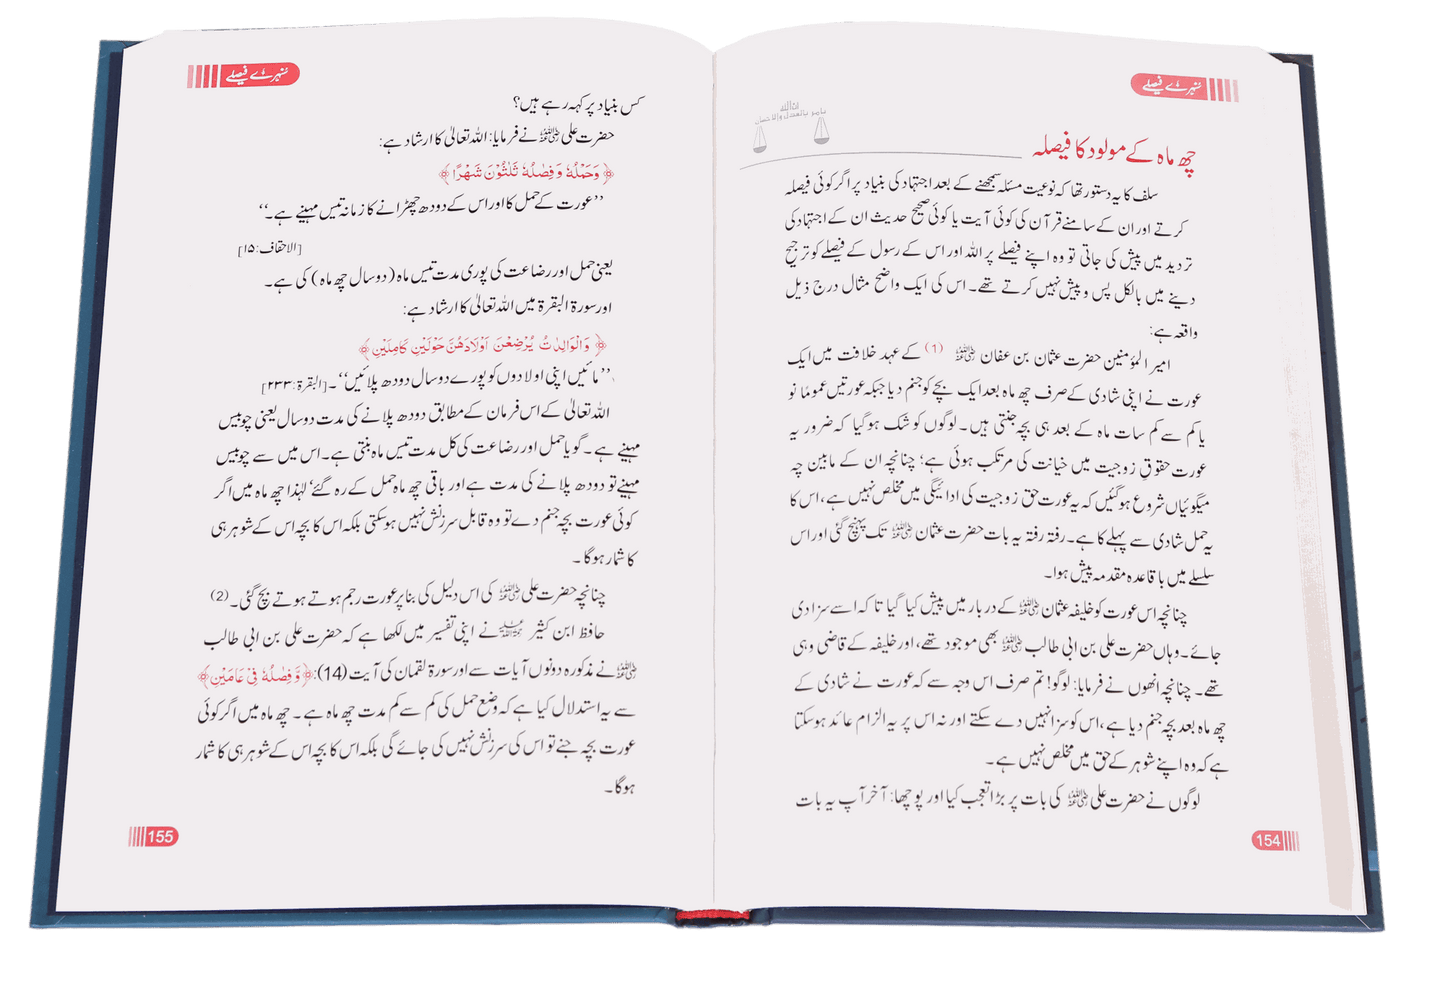 سنہرے فیصلے
ان اللہ
یامر بالعدل والاحسان
چھ ماہ کے مولود کا فیصلہ
سلف کا یہ دستور تھا کہ نوعیت مسئلہ سمجھنے کے بعد اجتہاد کی بنیاد پر اگر کوئی فیصلہ
کرتے اور ان کے سامنے قرآن کی کوئی آیت یا کوئی صحیح حدیث ان کے اجتہاد کی
تردید میں پیش کی جاتی تو وہ اپنے فیصلے پر اللہ اور اس کے رسول کے فیصلے کو ترجیح
دینے میں بالکل پس و پیش نہیں کرتے تھے۔ اس کی ایک واضح مثال درج ذیل
واقعہ ہے:
امیر المؤمنین حضرت عثمان بن عفان ؓ (1) کے عہد خلافت میں ایک
عورت نے اپنی شادی کے صرف چھ ماہ بعد ایک بچے کو جنم دیا جبکہ عورتیں عموماً نو
یا کم سے کم سات ماہ کے بعد ہی بچہ جنتی ہیں۔ لوگوں کو شک ہوگیا کہ ضرور یہ
عورت حقوقِ زوجیت میں خیانت کی مرتکب ہوئی ہے؛ چنانچہ ان کے مابین چہ
میگوئیاں شروع ہوگئیں کہ یہ عورت حق زوجیت کی ادائیگی میں مخلص نہیں ہے، اس کا
یہ حمل شادی سے پہلے کا ہے۔ رفتہ رفتہ یہ بات حضرت عثمان ؓ تک پہنچ گئی اور اس
سلسلے میں باقاعدہ مقدمہ پیش ہوا۔
چنانچہ اس عورت کو خلیفہ عثمان ؓ کے دربار میں پیش کیا گیا تاکہ اسے سزا دی
جائے۔ وہاں حضرت علی بن ابی طالب ؓ بھی موجود تھے، اور خلیفہ کے قاضی وہی
تھے۔ چنانچہ انھوں نے فرمایا: لوگو! تم صرف اس وجہ سے کہ عورت نے شادی کے
چھ ماہ بعد بچہ جنم دیا ہے، اس کو سزا نہیں دے سکتے اور نہ اس پر یہ الزام عائد ہوسکتا
ہے کہ وہ اپنے شوہر کے حق میں مخلص نہیں ہے۔
لوگوں نے حضرت علی ؓ کی بات پر بڑا تعجب کیا اور پوچھا: آخر آپ یہ بات
154
سنہرے فیصلے
کس بنیاد پر کہہ رہے ہیں؟
حضرت علی ؓ نے فرمایا: اللہ تعالیٰ کا ارشاد ہے:
﴿ وَحَمْلُهٗ وَفِصٰلُهٗ ثَلٰثُوْنَ شَهْرًا ﴾
’’عورت کے حمل کا اور اس کے دودھ چھڑانے کا زمانہ تیس مہینے ہے۔‘‘
[الاحقاف: ۱۵]
یعنی حمل اور رضاعت کی پوری مدت تیس ماہ (دو سال چھ ماہ) کی ہے۔
اور سورۃ البقرۃ میں اللہ تعالیٰ کا ارشاد ہے:
﴿ وَالْوَالِدٰتُ يُرْضِعْنَ اَوْلَادَهُنَّ حَوْلَيْنِ كَامِلَيْنِ ﴾
’’مائیں اپنی اولادوں کو پورے دو سال دودھ پلائیں‘‘۔ [البقرۃ: ۲۳۳]
اللہ تعالیٰ کے اس فرمان کے مطابق دودھ پلانے کی مدت دو سال یعنی چوبیس
مہینے ہے۔ گویا حمل اور رضاعت کی کل مدت تیس ماہ بنتی ہے۔ اس میں سے چوبیس
مہینے تو دودھ پلانے کی مدت ہے اور باقی چھ ماہ حمل کے رہ گئے‘ لہٰذا چھ ماہ میں اگر
کوئی عورت بچہ جنم دے تو وہ قابل سرزنش نہیں ہوسکتی بلکہ اس کا بچہ اس کے شوہر ہی
کا شمار ہوگا۔
چنانچہ حضرت علی ؓ کی اس دلیل کی بنا پر عورت رجم ہوتے ہوتے بچ گئی۔ (2)
حافظ ابن کثیر ؒ نے اپنی تفسیر میں لکھا ہے کہ حضرت علی بن ابی طالب
ؓ نے مذکورہ دونوں آیات سے اور سورۃ لقمان کی آیت (14): ﴿ وَّفِصٰلُهٗ فِيْ عَامَيْنِ ﴾
سے یہ استدلال کیا ہے کہ وضع حمل کی کم سے کم مدت چھ ماہ ہے۔ چھ ماہ میں اگر کوئی
عورت بچہ جنے تو اس کی سرزنش نہیں کی جائے گی بلکہ اس کا بچہ اس کے شوہر ہی کا شمار
ہوگا۔
155